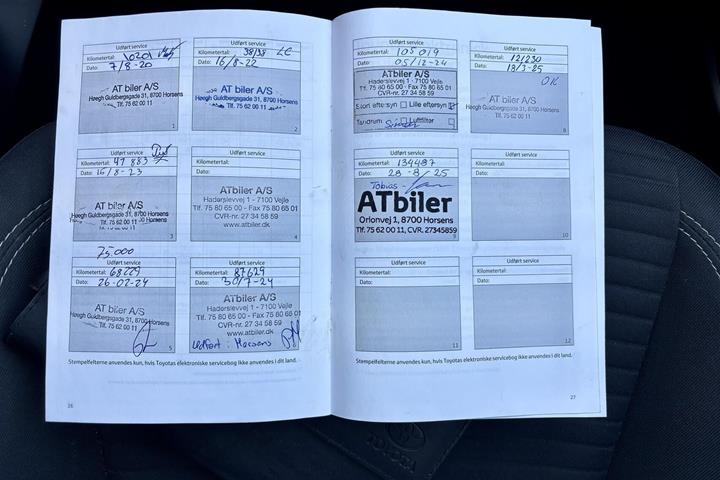 Udført service
Kilometertal: 10201
Dato: 7/8-20
AT biler A/S
Høegh Guldbergsgade 31, 8700 Horsens
Tlf. 75 62 00 11
1
Udført service
Kilometertal: 38138 LC
Dato: 16/8-22
AT biler A/S
Høegh Guldbergsgade 31, 8700 Horsens
Tlf. 75 62 00 11
2
Udført service
Kilometertal: 47883
Dato: 16/8-23
AT biler A/S
Høegh Guldbergsgade 31, 8700 Horsens
Tlf. 75 62 00 11
3
Udført service
Kilometertal:
Dato:
ATbiler A/S
Haderslevvej 1 - 7100 Vejle
Tlf. 75 80 65 00 - Fax 75 80 65 01
CVR-nr. 27 34 58 59
www.atbiler.dk
4
75.000
Udført service
Kilometertal: 68229
Dato: 26-02-24
AT biler A/S
Høegh Guldbergsgade 31, 8700 Horsens
Tlf. 75 62 00 11
5
Udført service
Kilometertal: 87629
Dato: 30/7-24
ATbiler A/S
Haderslevvej 1 - 7100 Vejle
Tlf. 75 80 65 00 - Fax 75 80 65 01
CVR-nr. 27 34 58 59
www.atbiler.dk
Udført: Horsens
Stempelfelterne anvendes kun, hvis Toyotas elektroniske servicebog ikke anvendes i dit land.
26
Udført service
Kilometertal: 105019
Dato: 05/12-24
ATbiler A/S
Haderslevvej 1 - 7100 Vejle
Tlf. 75 80 65 00 - Fax 75 80 65 01
CVR-nr. 27 34 58 59
Stort eftersyn Lille eftersyn
Tandrem Luftfilter
Udført service
Kilometertal: 121230
Dato: 13/3-25
OK
AT biler A/S
Høegh Guldbergsgade 31, 8700 Horsens
Tlf. 75 62 00 11
8
Udført service
Kilometertal: 134487
Dato: 28-8/25
Tobias
ATbiler
Orionvej 1, 8700 Horsens
Tlf. 75 62 00 11, CVR. 27345859
9
Udført service
Kilometertal:
Dato:
10
Udført service
Kilometertal:
Dato:
11
Udført service
Kilometertal:
Dato:
12
Stempelfelterne anvendes kun, hvis Toyotas elektroniske servicebog ikke anvendes i dit land.
27
TOYOTA